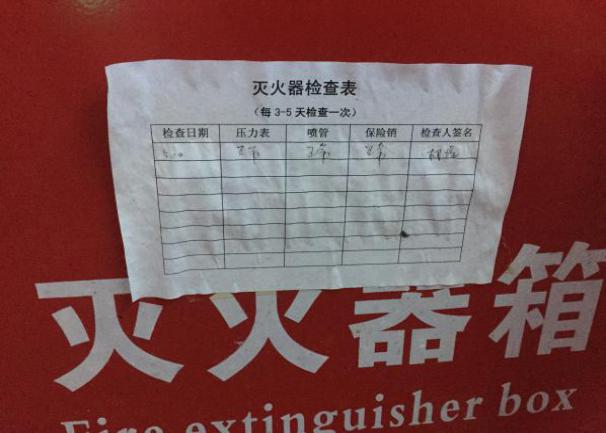 灭火器检查表
（每 3-5 天检查一次）
检查日期 压力表 喷管 保险销 检查人签名
正常 正常 正常
灭火器箱
Fire extinguisher box